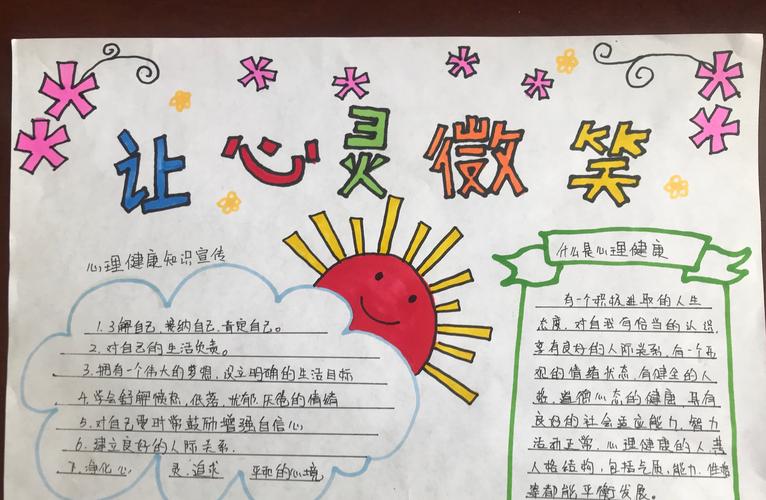 让心灵微笑
心理健康知识宣传
1.了解自己、接纳自己、肯定自己。
2.对自己的生活负责。
3.拥有一个伟大的梦想,设立明确的生活目标
4.学会纾解愤怒、低落、忧郁、压德的情绪
5.对自己要时常鼓励增强自信心
6.建立良好的人际关系.
7.净化心 灵.追求 平和的心境
什么是心理健康
有一个积极进取的人生
态度,对自我有恰当的认识,
享有良好的人际关系,有一个乐
观的情绪状态,有健全的人
格,道德心态的健康,具有
良好的社会适应能力,智力
活动正常,心理健康的人其
人格结构,包括气质,能力,性格
等都能平衡发展。